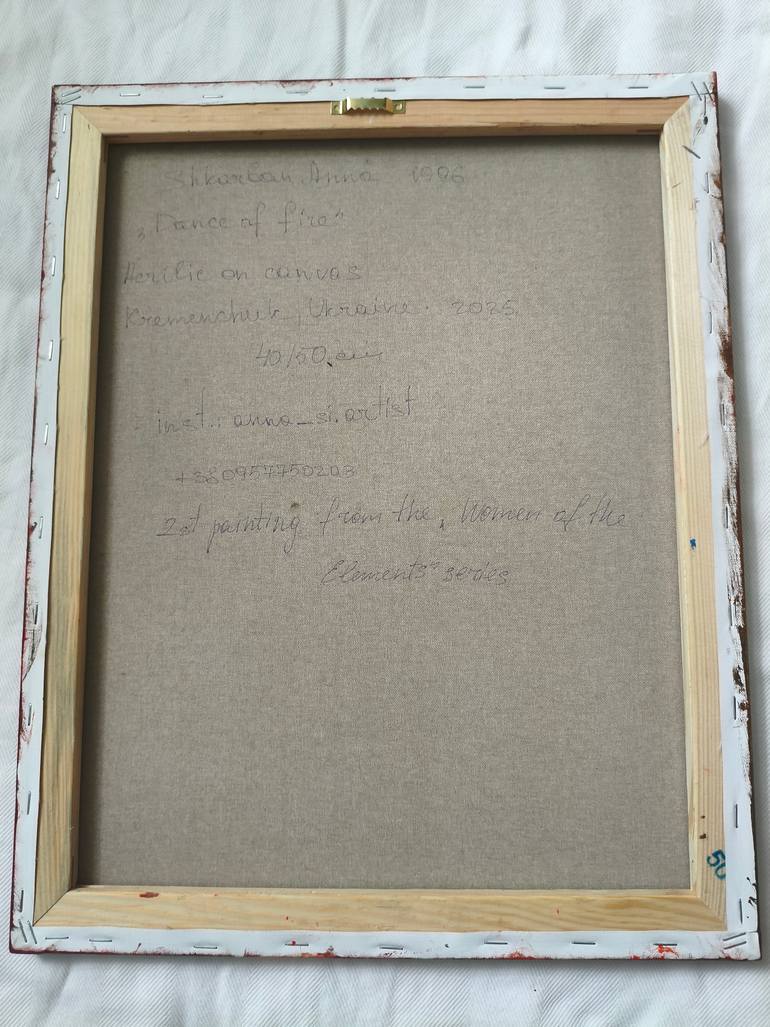 Shkarban Anna 1996
„Dance of fire"
Acrilic on canvas
Kremenchuk, Ukraine. 2025.
40/50 cm
inst.: anna_si.artist
+380957750203
2st painting from the „Women of the
Elements" series
50